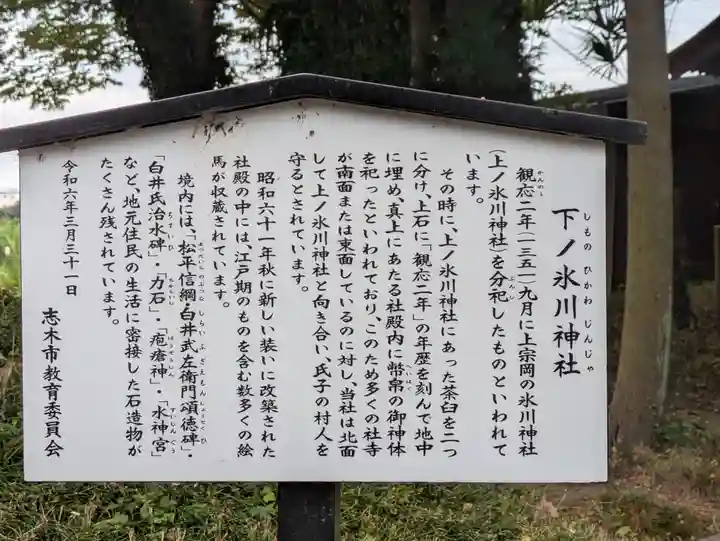 下ノ氷川神社
しもの ひかわ じんじゃ
観応二年(一三五一)九月に上宗岡の氷川神社
かんのう
(上ノ氷川神社)を分祀したものといわれて
ぶんし
います。
その時に、上ノ氷川神社にあった茶臼を二つ
に分け、上石に「観応二年」の年歴を刻んで地中
に埋め、真上にあたる社殿内に幣帛の御神体
へいはく
を祀ったといわれており、このため多くの社寺
が南面または東面しているのに対し、当社は北面
して上ノ氷川神社と向き合い、氏子の村人を
守るとされています。
昭和六十一年秋に新しい装いに改築された
社殿の中には、江戸期のものを含む数多くの絵
馬が収蔵されています。
境内には、「松平信綱・白井武左衛門頌徳碑」・
まつだいらのぶつな しらい ぶざえもん しょうとくひ
「白井氏治水碑」・「力石」・「疱瘡神」・「水神宮」
ちすいひ ちからいし ほうそうしん すいじんぐう
など、地元住民の生活に密接した石造物が
たくさん残されています。
令和六年三月三十一日
志木市教育委員会